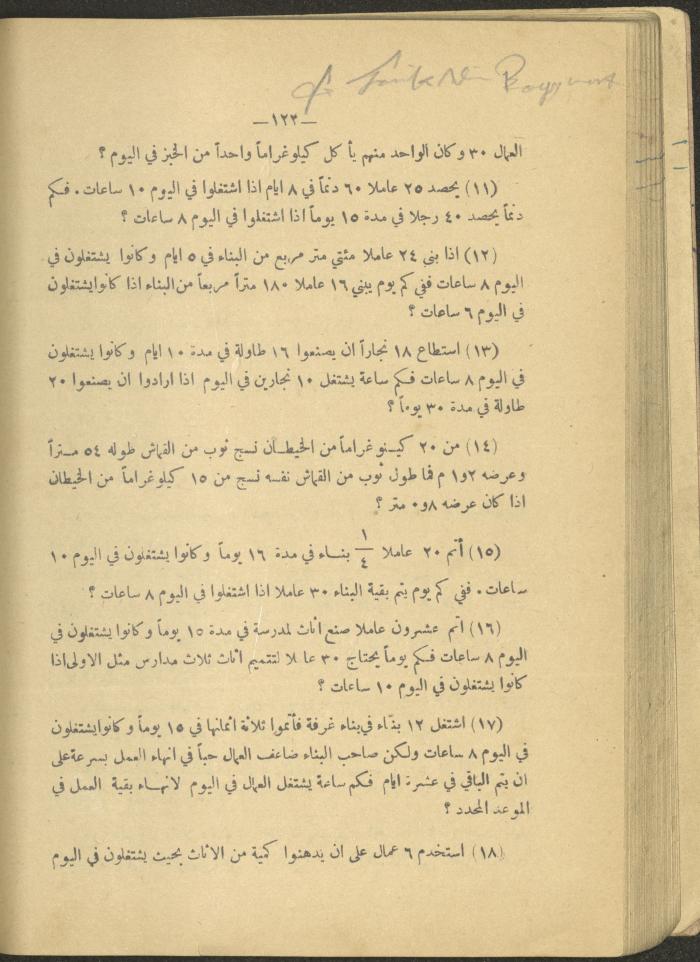 —١٢٣—
العمال ٣٠ وكان الواحد منهم يأ كل كيلوغراماً واحداً من الخبز في اليوم ؟
(١١) يحصد ٢٥ عاملا ٦٠ دنماً في ٨ ايام اذا اشتغلوا في اليوم ١٠ ساعات . فكم
دنماً يحصد ٤٠ رجلا في مدة ١٥ يوماً اذا اشتغلوا في اليوم ٨ ساعات ؟
(١٢) اذا بنى ٢٤ عاملا مئتي متر مربع من البناء في ٥ ايام وكانوا يشتغلون في
اليوم ٨ ساعات ففي كم يوم يبني ١٦ عاملا ١٨٠ متراً مربعاً من البناء اذا كانوا يشتغلون
في اليوم ٦ ساعات ؟
(١٣) استطاع ١٨ نجاراً ان يصنعوا ١٦ طاولة في مدة ١٠ ايام وكانوا يشتغلون
في اليوم ٨ ساعات فكم ساعة يشتغل ١٠ نجارين في اليوم اذا ارادوا ان يصنعوا ٢٠
طاولة في مدة ٣٠ يوماً ؟
(١٤) من ٢٠ كيلوغراماً من الخيطان نسج ثوب من القماش طوله ٥٤ متراً
وعرضه ١٫٢ م فما طول ثوب من القماش نفسه نسج من ١٥ كيلوغراماً من الخيطان
اذا كان عرضه ٠٫٨ متر ؟
(١٥) أتم ٢٠ عاملا ١/٤ بناء في مدة ١٦ يوماً وكانوا يشتغلون في اليوم ١٠
ساعات . ففي كم يوم يتم بقية البناء ٣٠ عاملا اذا اشتغلوا في اليوم ٨ ساعات ؟
(١٦) اتم عشرون عاملا صنع اثاث لمدرسة في مدة ١٥ يوماً وكانوا يشتغلون في
اليوم ٨ ساعات فكم يوماً يحتاج ٣٠ عا لا لتتميم اثاث ثلاث مدارس مثل الاولى اذا
كانوا يشتغلون في اليوم ١٠ ساعات ؟
(١٧) اشتغل ١٢ بنّاء في بناء غرفة فأتموا ثلاثة اثمانها في ١٥ يوماً وكانوا يشتغلون
في اليوم ٨ ساعات ولكن صاحب البناء ضاعف العمال حباً في انهاء العمل بسرعة على
ان يتم الباقي في عشرة ايام فكم ساعة يشتغل العمال في اليوم لانهاء بقية العمل في
الموعد المحدد ؟
(١٨) استخدم ٦ عمال على ان يدهنوا كمية من الاثاث بحيث يشتغلون في اليوم